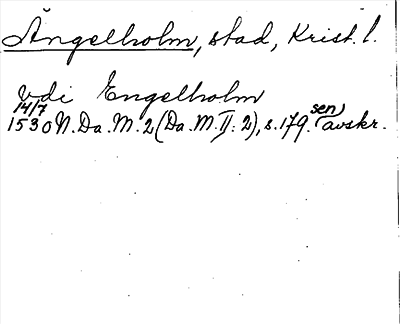 Ängelholm, stad, Krist. l.
vdi Engelholm
14/7 sen,
1530 N. Da. M. 2 (Da. M. II: 2), s. 179. avskr.